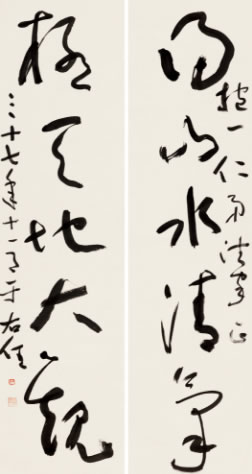 得山水清氣
一仁弟法家正
極天地大觀
三十七年十一月于右任